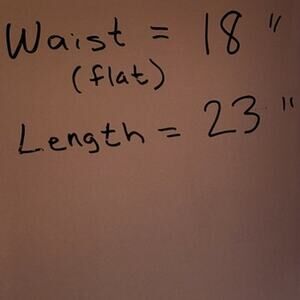 Waist = 18"
(flat)
Length = 23"